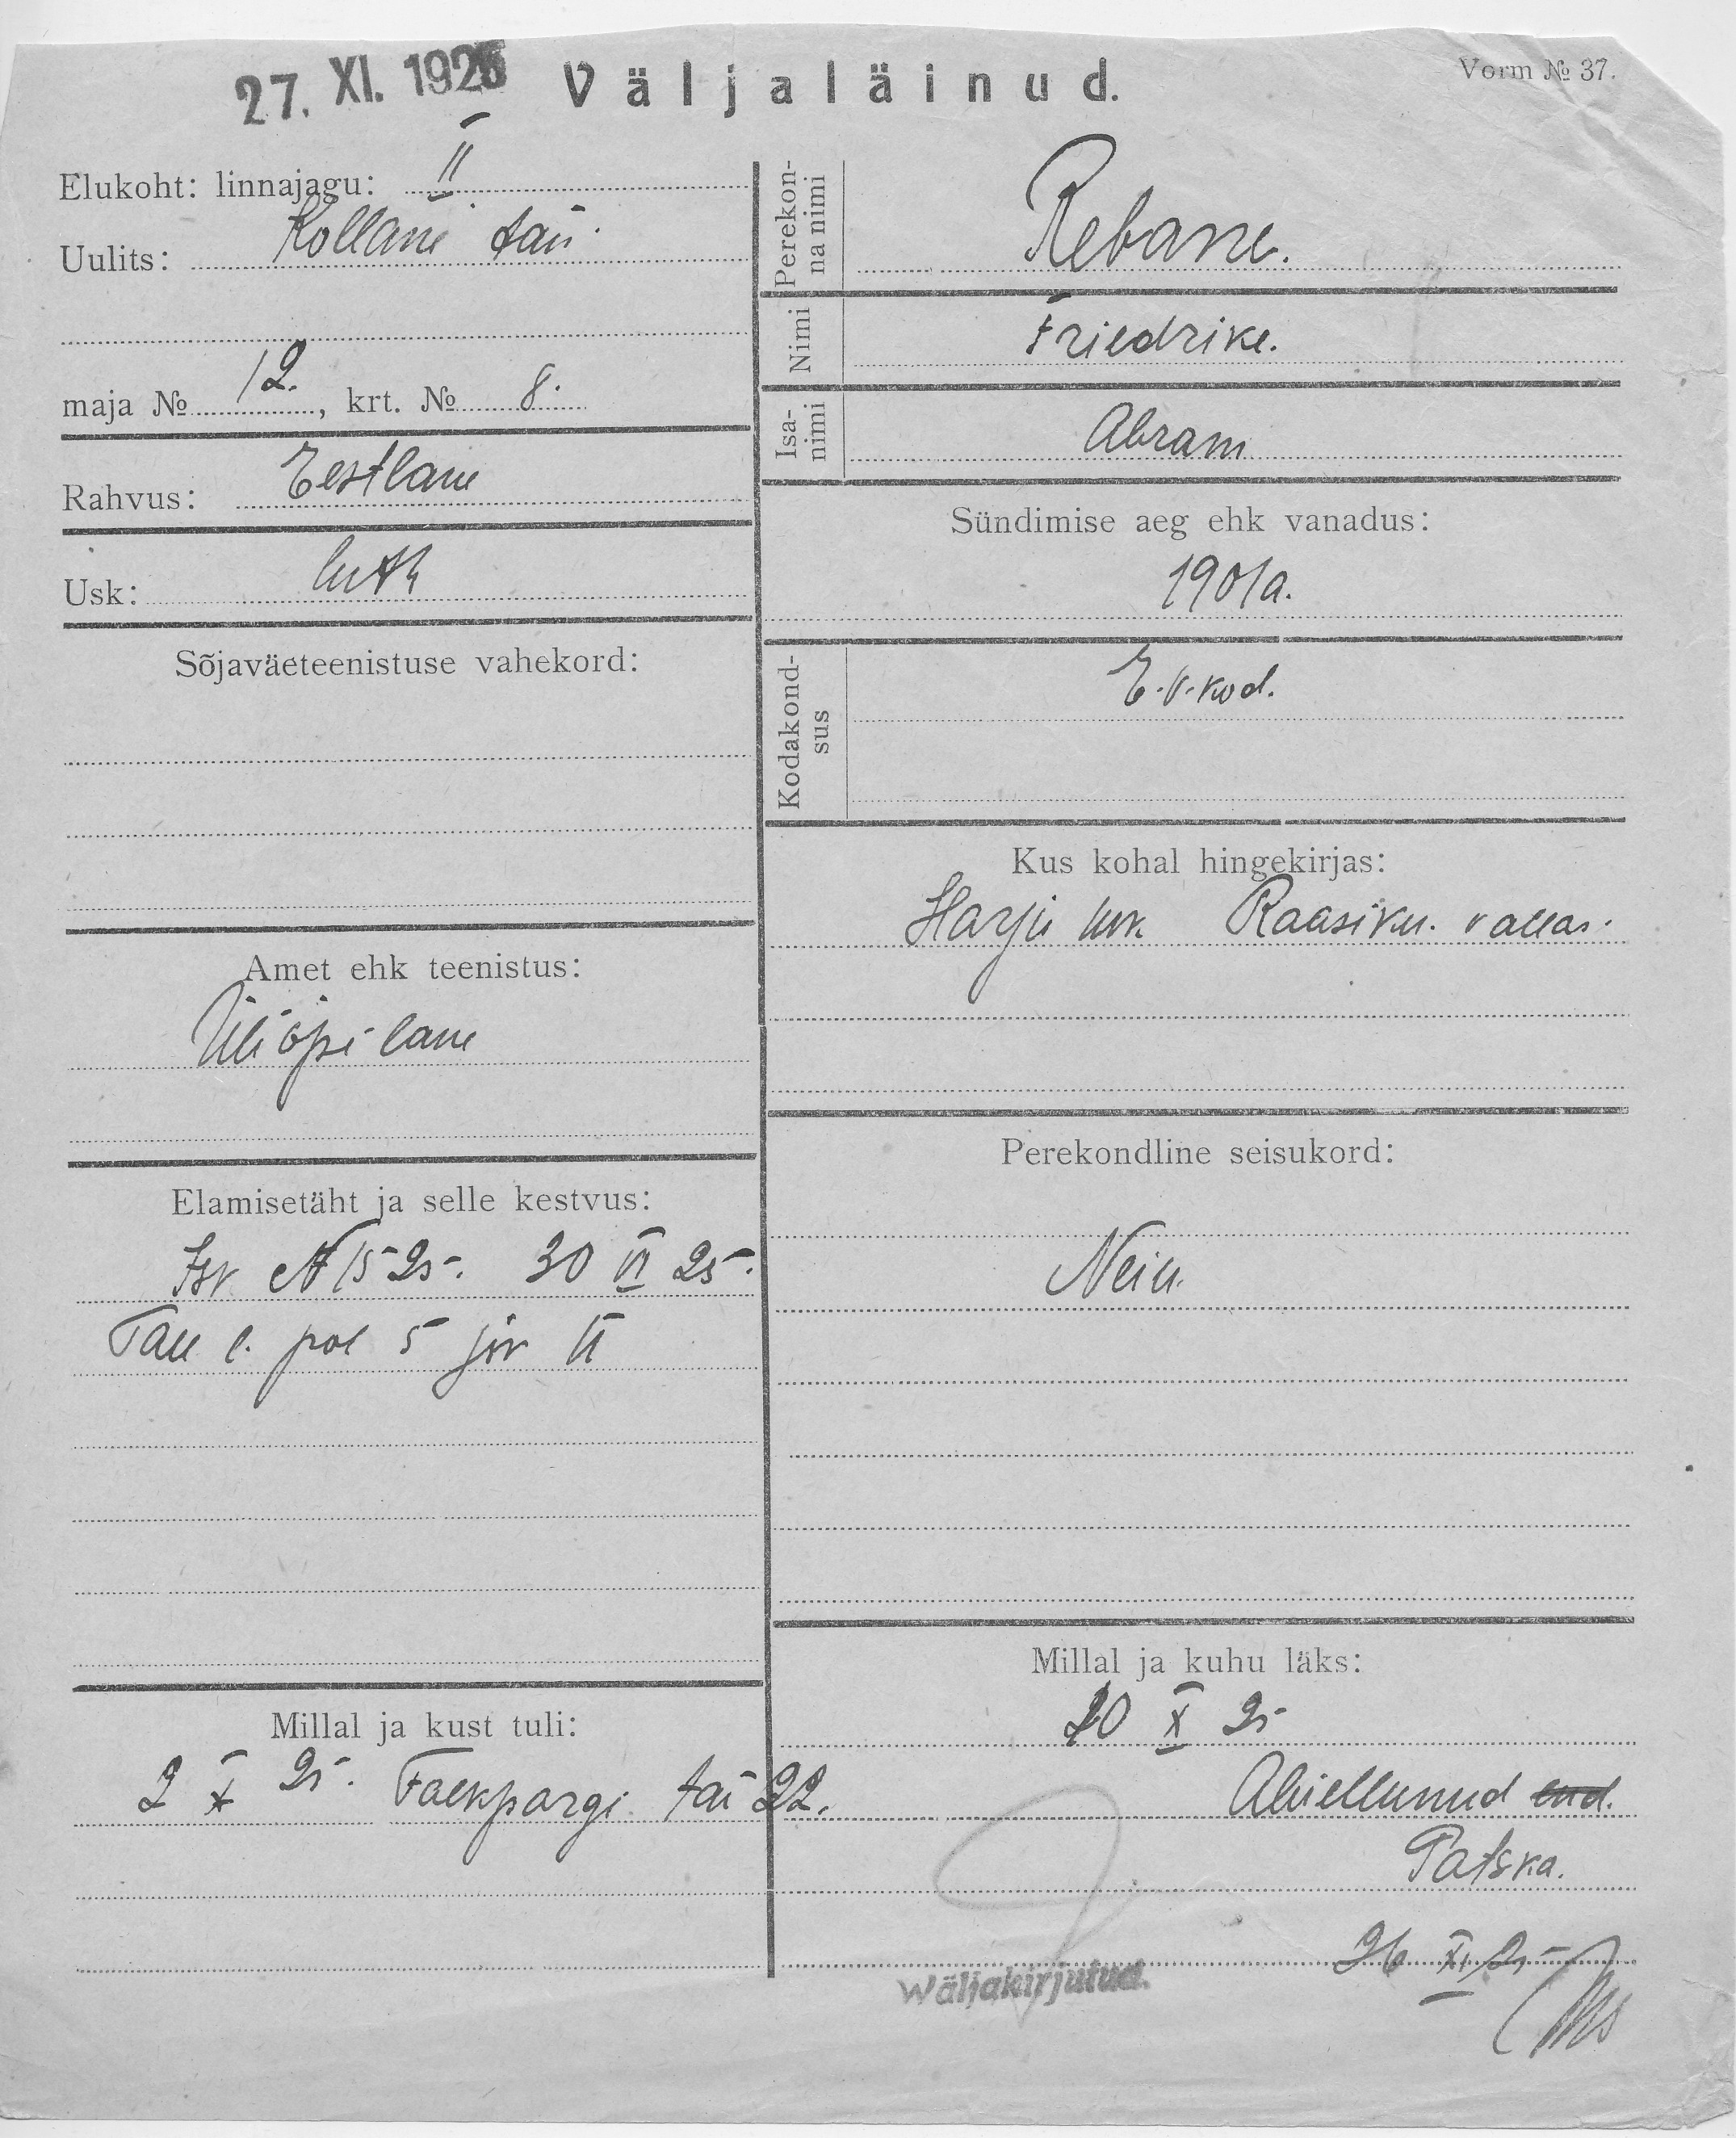 27. XI. 1925 Väljaläinud.
Vorm № 37.
Elukoht: linnajagu: II
Uulits: Kollane tän.
maja № 12., krt. № 8.
Rahvus: Eestlane
Usk: luth
Sõjaväeteenistuse vahekord:
Amet ehk teenistus:
Üliõpilane
Elamisetäht ja selle kestvus:
Isv № 1525. 30 VI 25.
Tall l. pol 5 jsk
Millal ja kust tuli:
2 X 25. Falkpargi tän 22.
Perekon-
na nimi
Rebane.
Nimi
Friedrike.
Isa-
nimi
Abram
Sündimise aeg ehk vanadus:
1901a.
Kodakond-
sus
E.V. kod.
Kus kohal hingekirjas:
Harju mk. Raasiku. vallas.
Perekondline seisukord:
Neiu.
Millal ja kuhu läks:
20 X 25
Abiellunud end.
Patska.
26 XI 25
Wäljakirjutud.